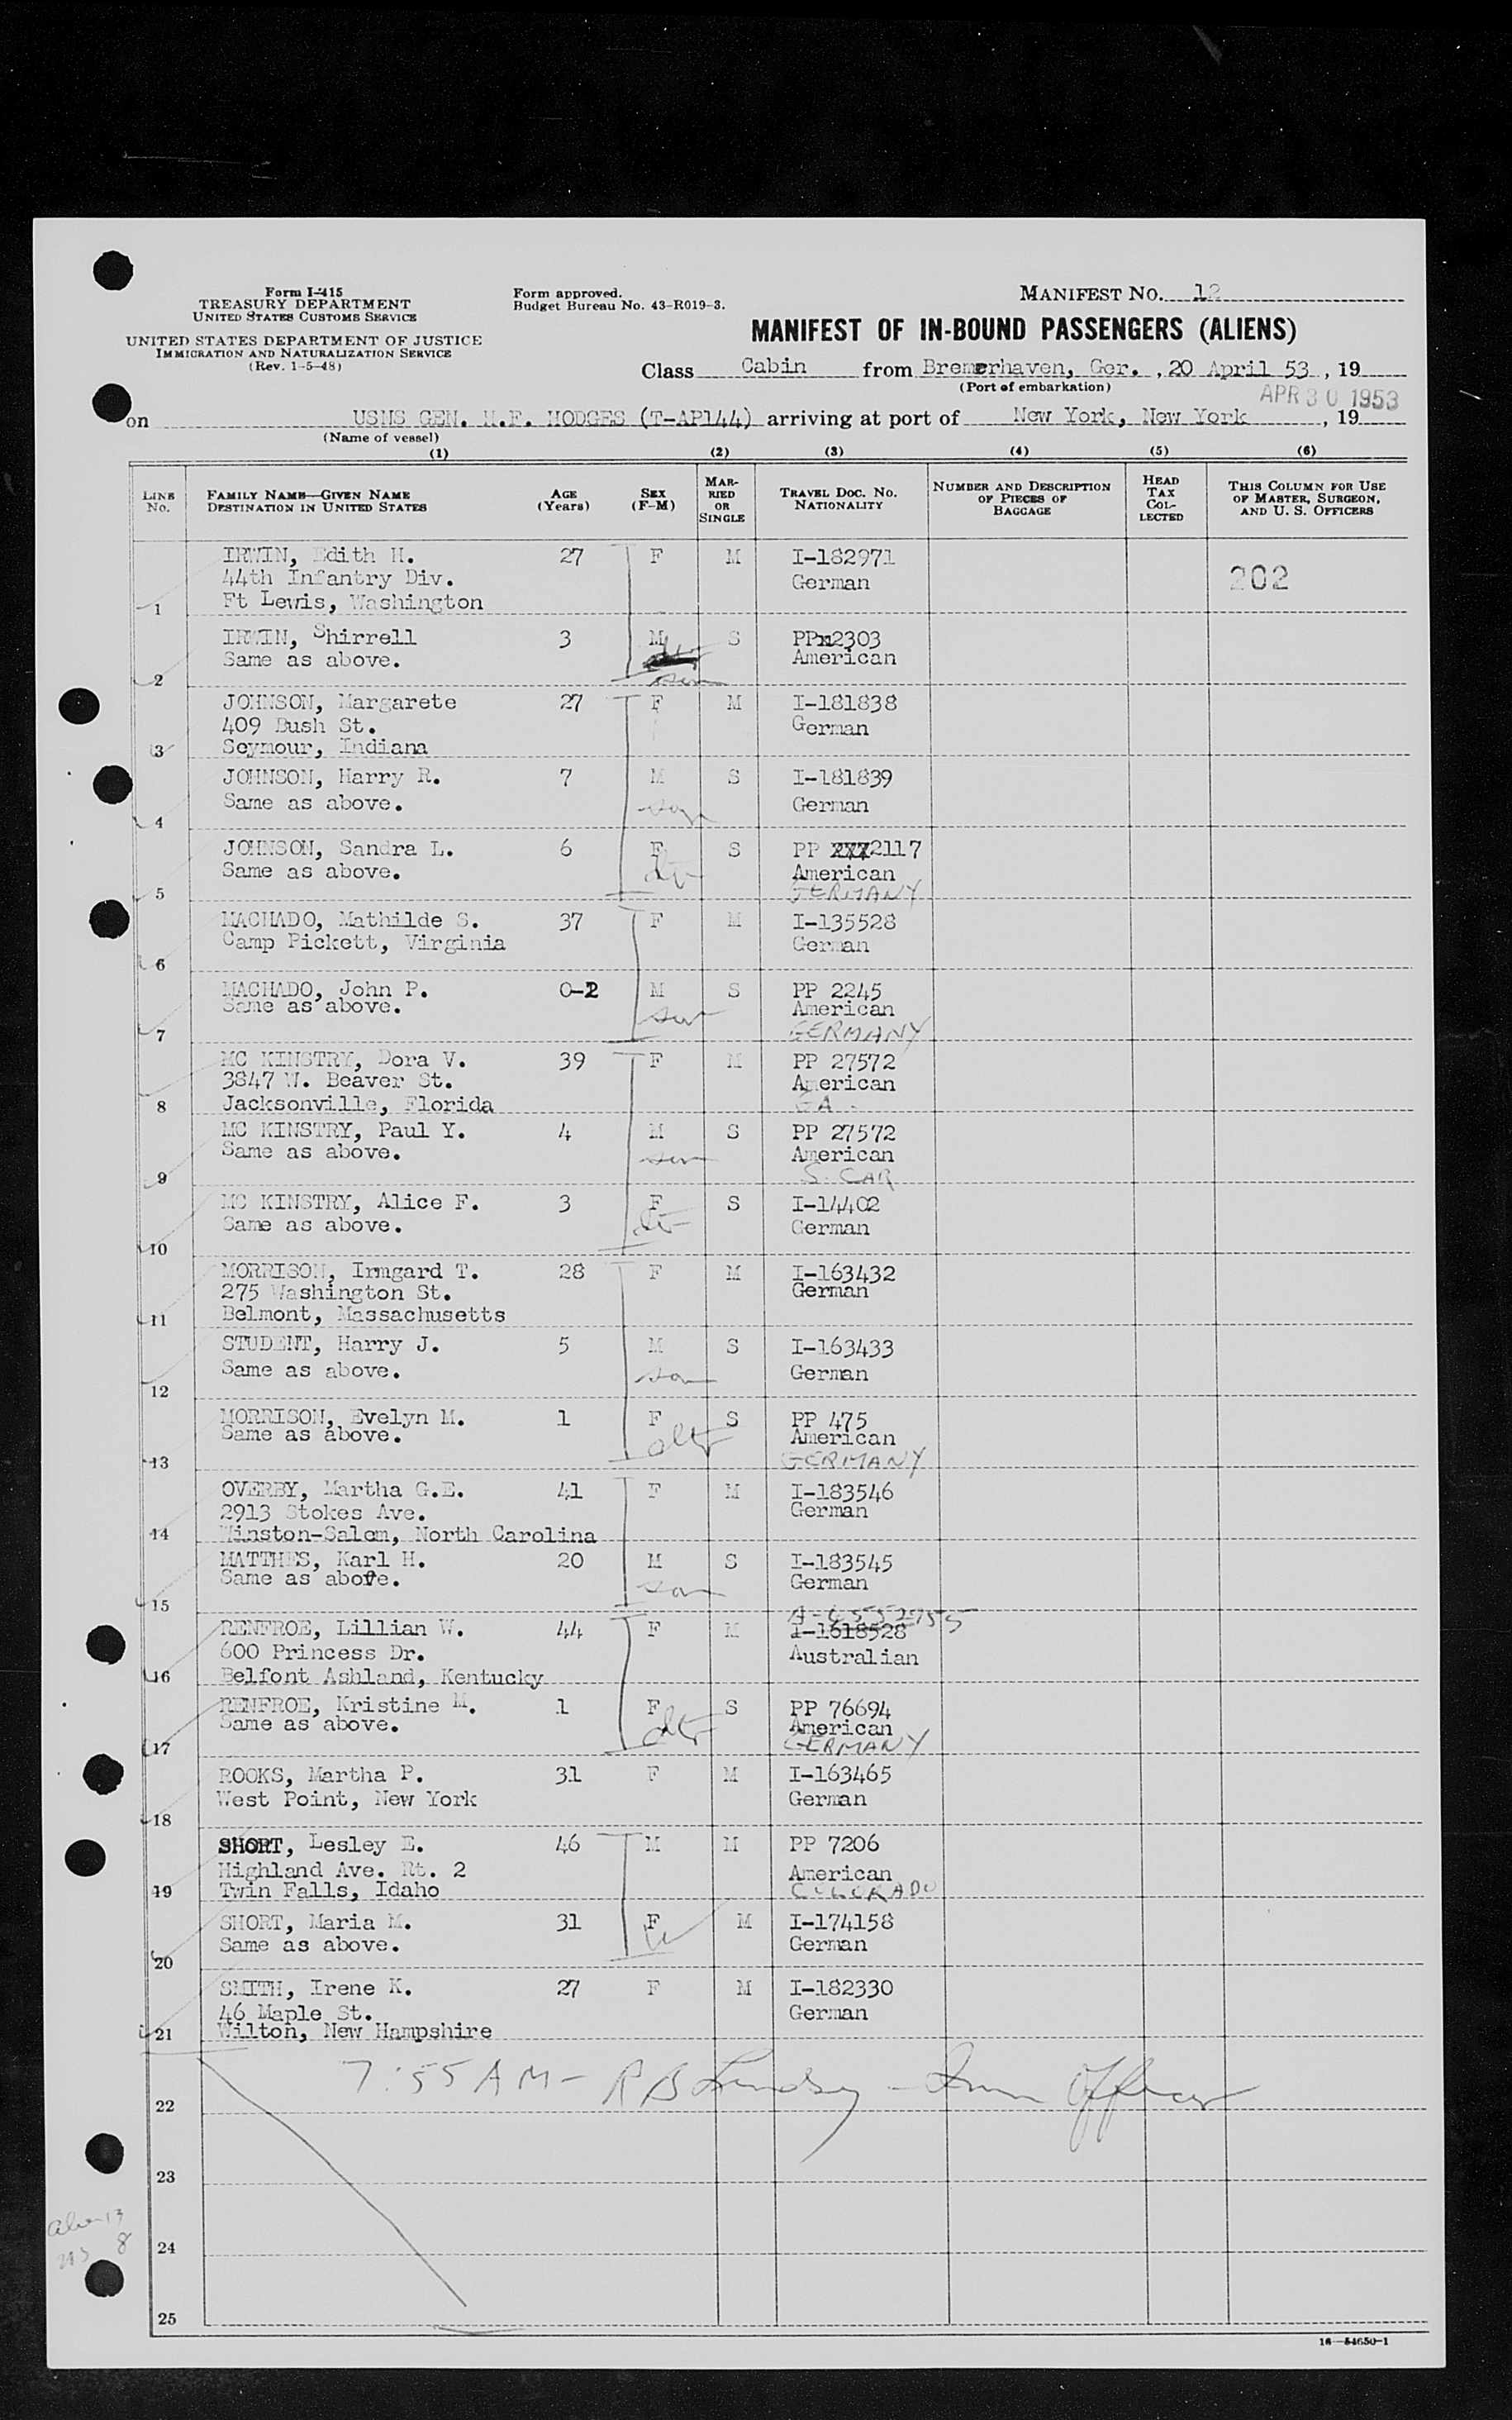 Form I-415
TREASURY DEPARTMENT
UNITED STATES CUSTOMS SERVICE
UNITED STATES DEPARTMENT OF JUSTICE
IMMIGRATION AND NATURALIZATION SERVICE
(Rev. 1-5-48)
Form approved.
Budget Bureau No. 43-R019-3.
MANIFEST NO. 12
MANIFEST OF IN-BOUND PASSENGERS (ALIENS)
Class Cabin from Bremerhaven, Ger. , 20 April 53 , 19
(Port of embarkation)
APR 30 1953
on USNS GEN. H.F. HODGES (T-AP144) arriving at port of New York, New York , 19
(Name of vessel)
(1) (2) (3) (4) (5) (6)
LINE No. FAMILY NAME—GIVEN NAME DESTINATION IN UNITED STATES AGE (Years) SEX (F-M) MARRIED OR SINGLE TRAVEL DOC. NO. NATIONALITY NUMBER AND DESCRIPTION OF PIECES OF BAGGAGE HEAD TAX COLLECTED THIS COLUMN FOR USE OF MASTER, SURGEON, AND U. S. OFFICERS
IRWIN, Edith H. 27 F M I-182971
44th Infantry Div. German 202
1 Ft Lewis, Washington
IRWIN, Shirrell 3 M S PP 2303
Same as above. American
2 son
JOHNSON, Margarete 27 F M I-181838
409 Bush St. German
3 Seymour, Indiana
JOHNSON, Harry R. 7 M S I-181839
Same as above. son German
4
JOHNSON, Sandra L. 6 F S PP 2117
Same as above. dtr American
5 GERMANY
MACHADO, Mathilde S. 37 F M I-135528
Camp Pickett, Virginia German
6
MACHADO, John P. 0-2 M S PP 2245
Same as above. son American
7 GERMANY
MC KINSTRY, Dora V. 39 F M PP 27572
3847 W. Beaver St. American
8 Jacksonville, Florida GA.
MC KINSTRY, Paul Y. 4 M S PP 27572
Same as above. son American
9 S. CAR
MC KINSTRY, Alice F. 3 F S I-14402
Same as above. dtr German
10
MORRISON, Irmgard T. 28 F M I-163432
275 Washington St. German
11 Belmont, Massachusetts
STUDENT, Harry J. 5 M S I-163433
Same as above. son German
12
MORRISON, Evelyn M. 1 F S PP 475
Same as above. dtr American
13 GERMANY
OVERBY, Martha G.E. 41 F M I-183546
2913 Stokes Ave. German
14 Winston-Salem, North Carolina
MATTHES, Karl H. 20 M S I-183545
Same as above. son German
15
A-6552955
RENFROE, Lillian W. 44 F M I-1618528
600 Princess Dr. Australian
16 Belfont Ashland, Kentucky
RENFROE, Kristine M. 1 F S PP 76694
Same as above. dtr American
17 GERMANY
ROOKS, Martha P. 31 F M I-163465
West Point, New York German
18
SHORT, Lesley E. 46 M M PP 7206
Highland Ave. Rt. 2 American
19 Twin Falls, Idaho COLORADO
SHORT, Maria M. 31 F M I-174158
Same as above. w German
20
SMITH, Irene K. 27 F M I-182330
46 Maple St. German
21 Wilton, New Hampshire
7:55 AM - R B Lindsy - Imm Officer
22
23
24
25
16—54650-1